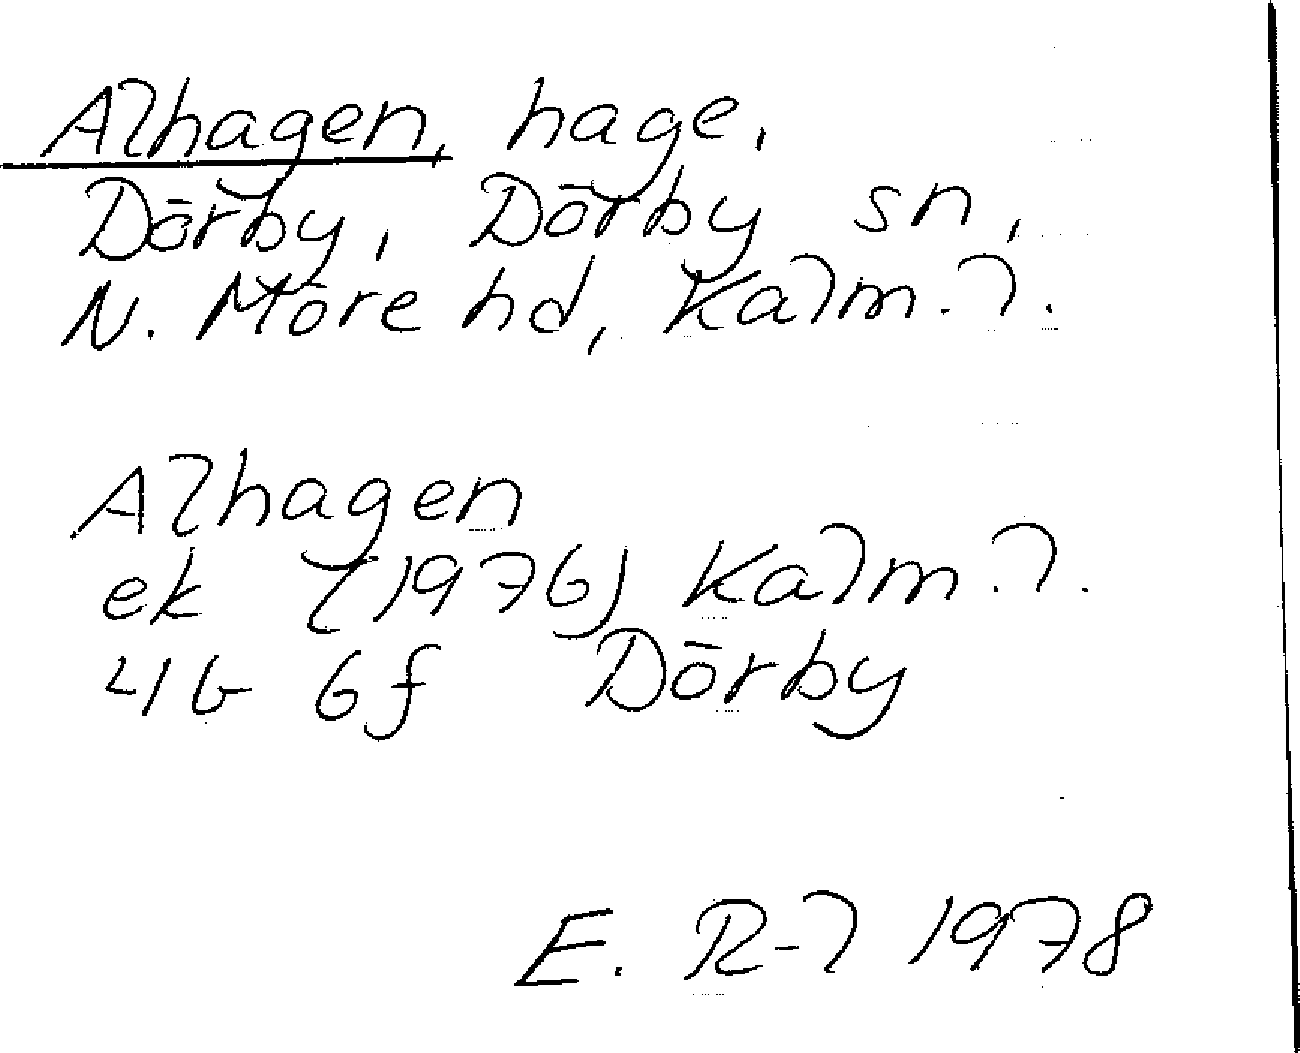 Alhagen, hage,
Dörby, Dörby sn,
N. Möre hd, Kalm. l.
Alhagen
ek (1976) Kalm. l.
4G 6f Dörby
E. R-l 1978